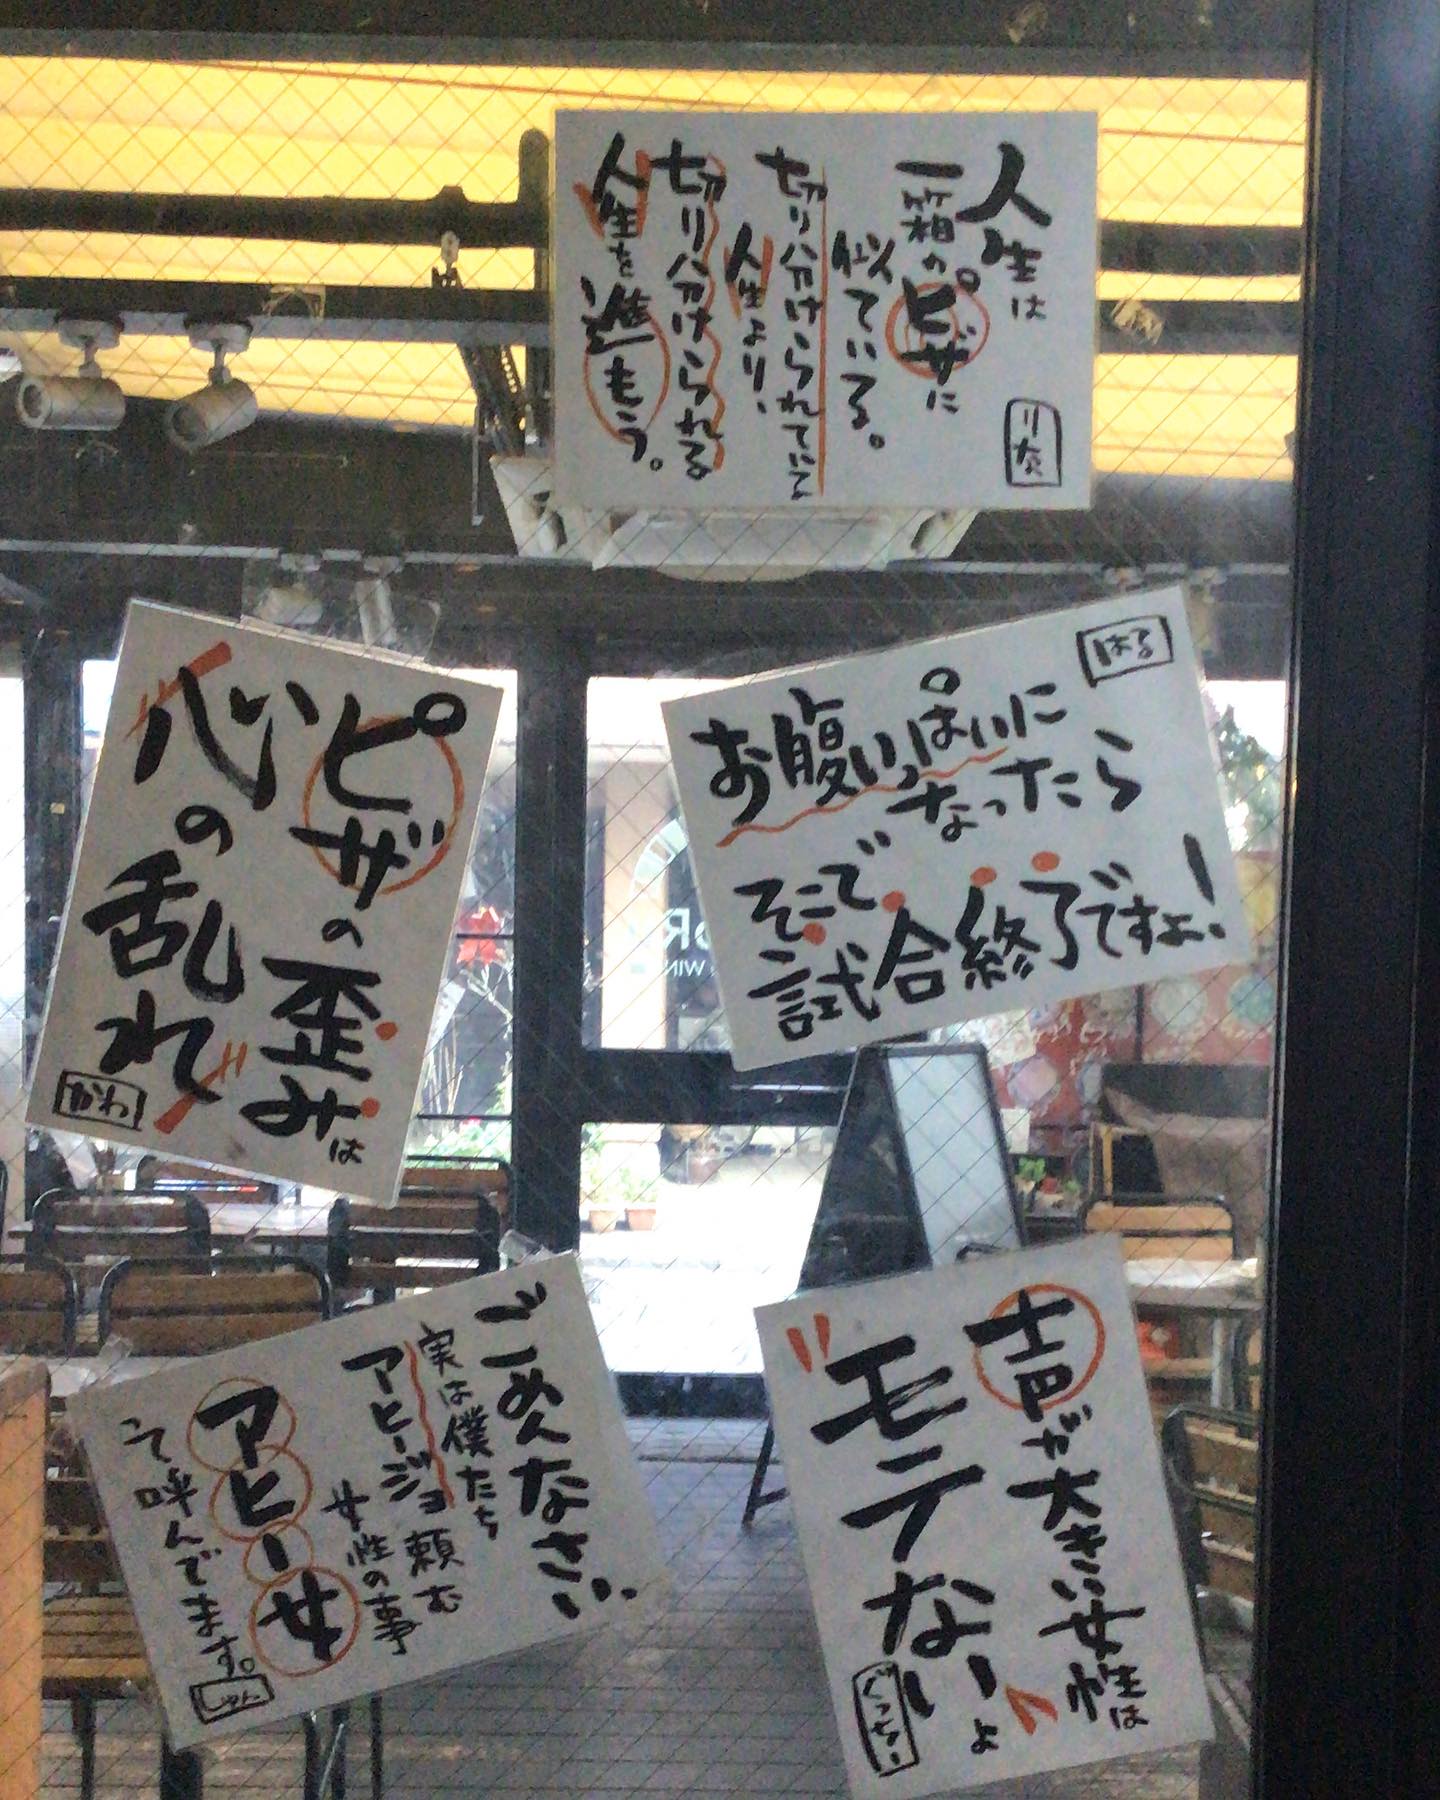 人生は
一箱のピザに
似ている。
切り分けられていく
人生より、
切り分けられる
人生を進もう。
ピザの歪みは
心の乱れ
かわ
はる
お腹いっぱいに
なったら
そこで
試合終了ですよ!
ごめんなさい
実は僕たち
アヒージョ頼む
女性の事
アヒー女
って呼んでます。
しゅん
声が大きい女性は
モテないよ
ぐっちぃ